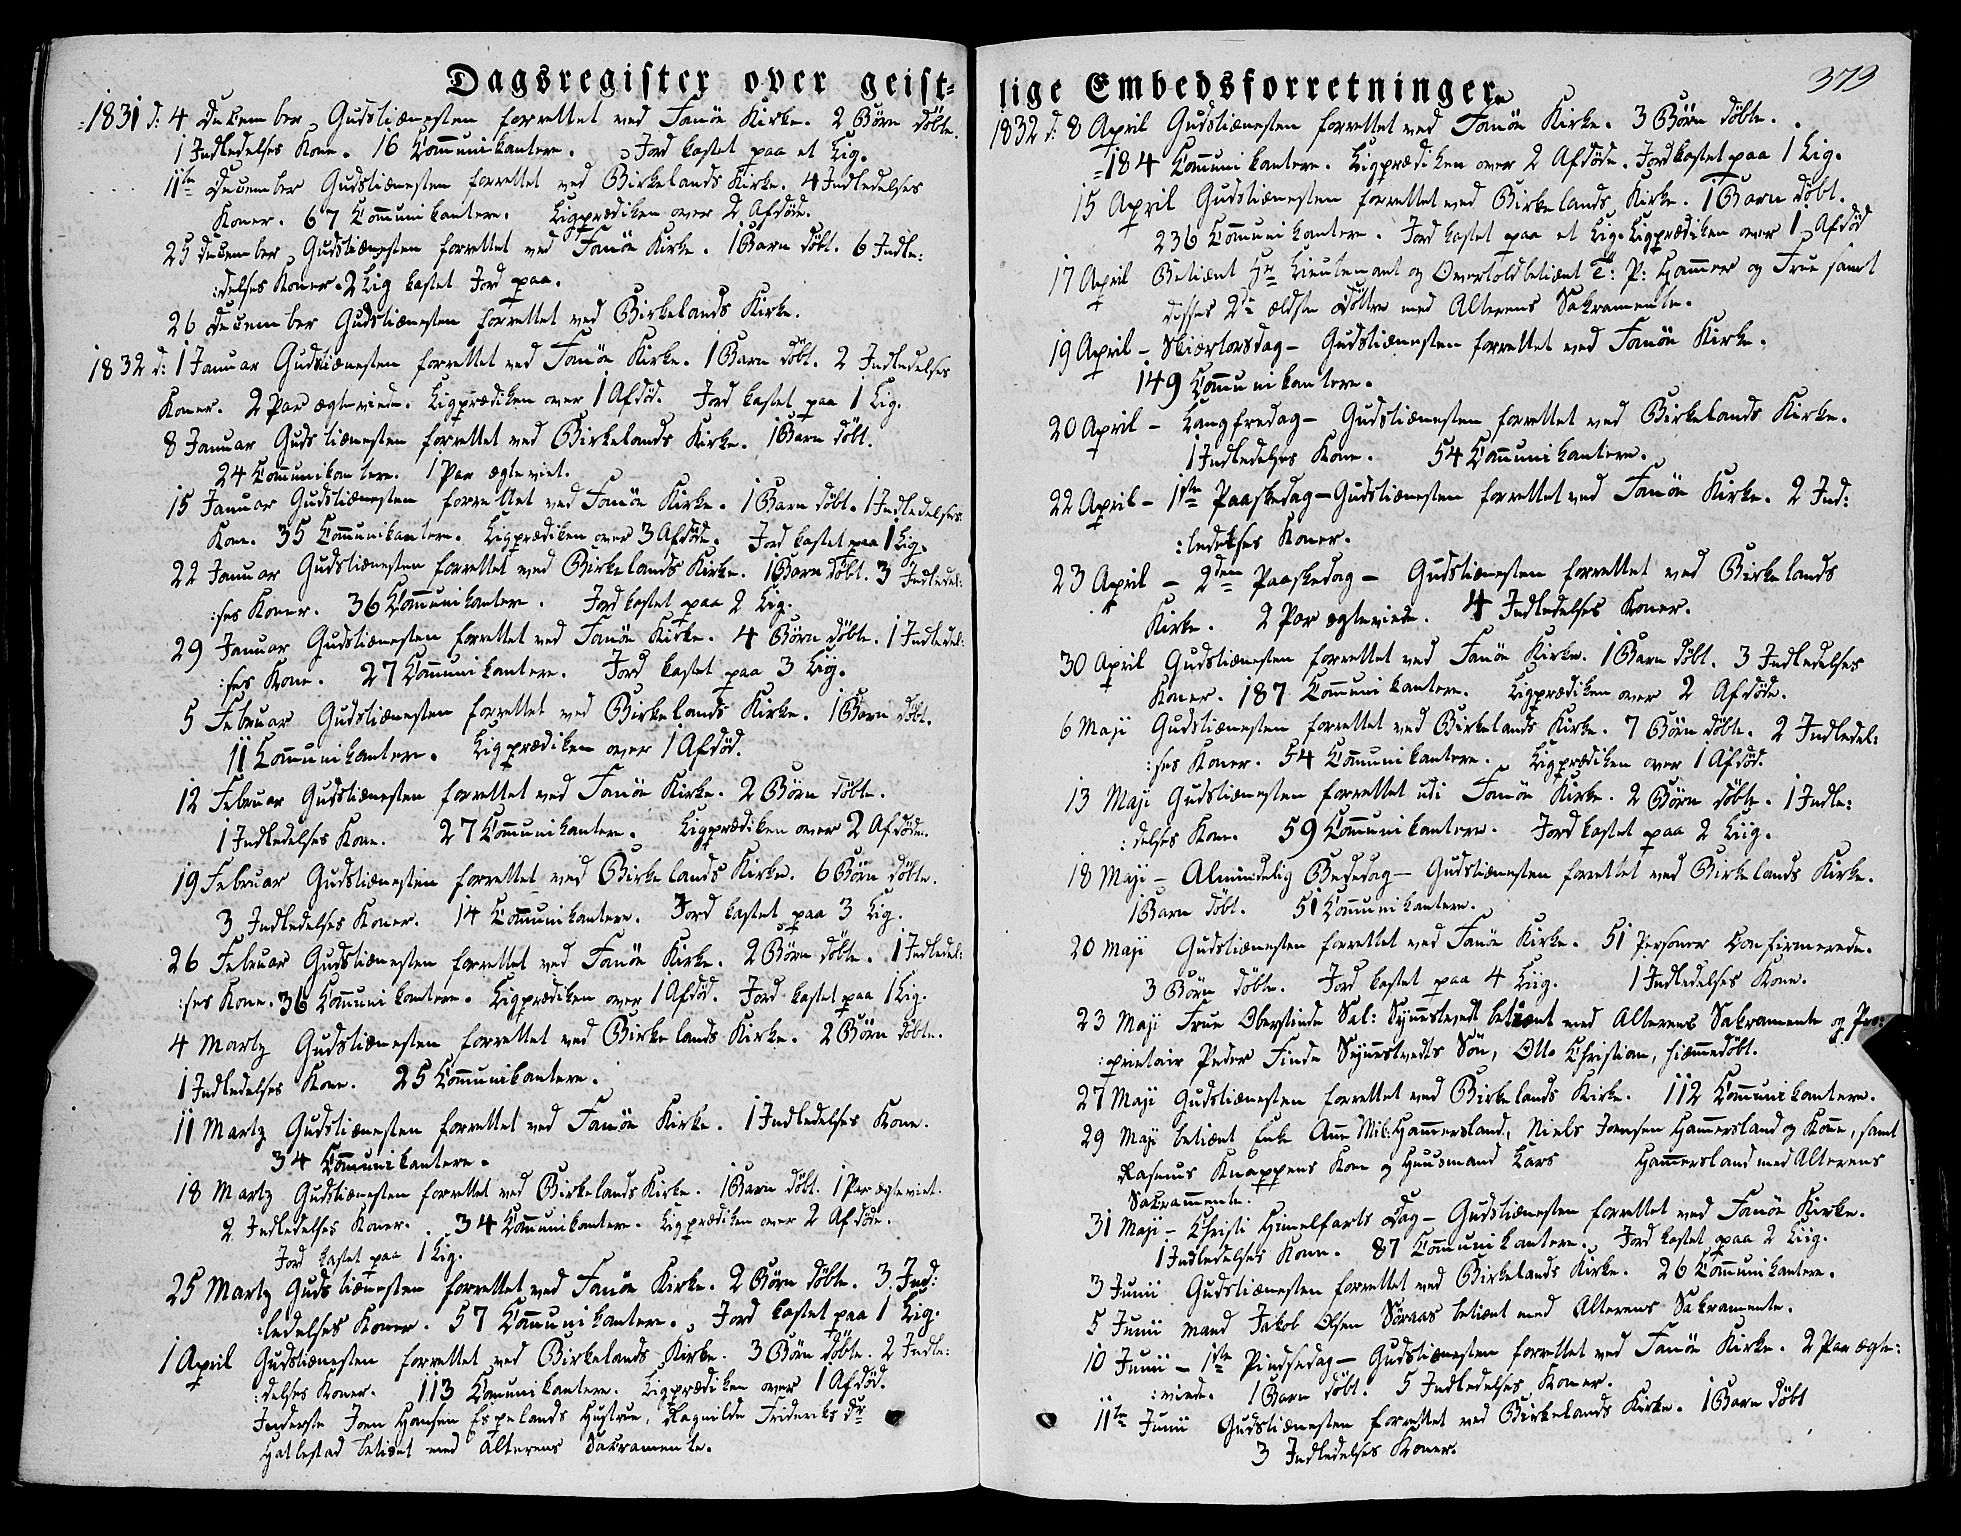 Dagsregister over geist=
1831 d: 4 December Gudstiænesten forrettet ved Fanöe Kirke. 2 Börn döbte.
1 Indledelses Kone. 16 Com̄unikantere. Jord kastet paa et Lig.
11te December Gudstiænesten forrettet ved Birkelands Kirke. 4 Indledelses
Koner. 67 Com̄unikantere. Ligprædiken over 2 Afdöde.
25 December Gudstiænesten forrettet ved Fanöe Kirke. 1 Barn döbt. 6 Indle:
:delses Koner. 2 Lig kastet Jord paa.
26 December Gudstiænesten forrettet ved Birkelands Kirke.
1832 d: 1 Januar Gudstiænesten forrettet ved Fanöe Kirke. 1 Barn döbt. 2 Indledelses
Koner. 2 Par ægteviede. Ligprædiken over 1 Afdöd. Jord kastet paa 1 Lig.
8 Januar Gudstiænesten forrettet ved Birkelands Kirke. 1 Barn döbt.
24 Com̄unikantere. 1 Par ægteviet.
15 Januar Gudstiænesten forrettet ved Fanöe Kirke. 1 Barn döbt. 1 Indledelses
Kone. 35 Com̄unikantere. Ligprædiken over 3 Afdöde. Jord kastet paa 1 Lig.
22 Januar Gudstiænesten forrettet ved Birkelands Kirke. 1 Barn döbt. 3 Indledel:
:ses Koner. 36 Com̄unikantere. Jord kastet paa 2 Lig.
29 Januar Gudstiænesten forrettet ved Fanöe Kirke. 4 Börn döbte. 1 Indledel:
:ses Kone. 27 Com̄unikantere. Jord kastet paa 3 Liig.
5 Februar Gudstiænesten forrettet ved Birkelands Kirke. 1 Barn döbt.
11 Com̄unikantere. Ligprædiken over 1 Afdöd.
12 Februar Gudstiænesten forrettet ved Fanöe Kirke. 2 Börn döbte.
1 Indledelses Kone. 27 Com̄unikantere. Ligprædiken over 2 Afdöde.
19 Februar Gudstiænesten forrettet ved Birkelands Kirke. 6 Börn döbte.
3 Indledelses Koner. 14 Com̄unikantere. Jord kastet paa 3 Lig.
26 Februar Gudstiænesten forrettet ved Fanöe Kirke. 2 Börn döbte. 1 Indledel:
:ses Kone. 36 Com̄unikantere. Ligprædiken over 1 Afdöd. Jord kastet paa 1 Lig.
4 Martz Gudstiænesten forrettet ved Birkelands Kirke. 2 Börn döbte.
1 Indledelses Kone. 25 Com̄unikantere.
11 Martz Gudstiænesten forrettet ved Fanöe Kirke. 1 Indledelses Kone.
34 Com̄unikantere.
18 Martz Gudstiænesten forrettet ved Birkelands Kirke. 1 Barn döbt. 1 Par ægteviet.
2 Indledelses Koner. 34 Com̄unikantere. Ligprædiken over 2 Afdöde.
Jord kastet paa 1 Lig.
25 Martz Gudstiænesten forrettet ved Fanöe Kirke. 2 Börn döbte. 3 Ind:
:ledelses Koner. 57 Com̄unikantere. Jord kastet paa 1 Lig.
1 April Gudstiænesten forrettet ved Birkelands Kirke. 3 Börn döbte. 2 Indle:
:delses Koner. 113 Com̄unikantere. Ligprædiken over 1 Afdöd.
Inderste Joen Hansen Espelands Hustrue, Ragnilde Frideriks Dr
Hatlestad betient med Alterens Sacramente.
373
lige Embedsforretninger.
1832 d: 8 April Gudstiænesten forrettet ved Fanöe Kirke. 3 Börn döbte.
184 Com̄unikantere. Ligprædiken over 2 Afdöde. Jord kastet paa 1 Lig.
15 April Gudstiænesten forrettet ved Birkelands Kirke. 1 Barn döbt.
236 Com̄unikantere. Jord kastet paa et Lig. Ligprædiken over 1 Afdöd
17 April Betient Hr Lieutenant og Overtoldbetient T: P: Ham̄er og Frue samt
disses 2de ældste Döttre med Alterens Sakramente.
19 April - Skiertorsdag - Gudstiænesten forrettet ved Fanöe Kirke.
149 Com̄unikantere.
20 April - Langfredag - Gudstiænesten forrettet ved Birkelands Kirke.
1 Indledelses Kone. 54 Com̄unikantere.
22 April - 1ste Paaskedag - Gudstiænesten forrettet ved Fanöe Kirke. 2 Ind:
:ledelses Koner.
23 April - 2den Paaskedag - Gudstiænesten forrettet ved Birkelands
Kirke. 2 Par ægteviede. 4 Indledelses Koner.
30 April Gudstiænesten forrettet ved Fanöe Kirke. 1 Barn döbt. 3 Indledelses
Koner. 187 Com̄unikantere. Ligprædiken over 2 Afdöde.
6 Maji Gudstiænesten forrettet ved Birkelands Kirke. 7 Börn döbte. 2 Indledel:
:ses Koner. 54 Com̄unikantere. Ligprædiken over 1 Afdöd.
13 Maji Gudstiænesten forrettet udi Fanöe Kirke. 2 Börn döbte. 1 Indle:
:delses Kone. 59 Com̄unikantere. Jord kastet paa 2 Liig.
18 Maji - Almindelig Bededag - Gudstiænesten forrettet ved Birkelands Kirke.
1 Barn döbt. 51 Com̄unikantere.
20 Maji Gudstiænesten forrettet ved Fanöe Kirke. 51 Personer Confirmerede.
3 Börn döbte. Jord kastet paa 4 Liig. 1 Indledelses Kone.
23 Maji Frue Oberstinde Sal: Synnestvedt betient med Alterens Sakramente og Pro:
:prietair Peder Finde Synnestvedts Sön, Otto Christian, hiem̄edöbt.
27 Maji Gudstiænesten forrettet ved Birkelands Kirke. 112 Com̄unikantere.
29 Maji betient Enke Anne Mik: Ham̄ersland, Niels Joensen Ham̄ersland og Kone, samt
Rasmus Knappens Kone og Huusmand Lars Ham̄ersland med Alterens
Sakramente.
31 Maji - Christi Himelfarts Dag - Gudstiænesten forrettet ved Fanöe Kirke.
1 Indledelses Kone. 87 Com̄unikantere. Jord kastet paa 2 Liig.
3 Junii Gudstiænesten forrettet ved Birkelands Kirke. 26 Com̄unikantere.
5 Junii Mand Jakob Olsen Söraas betient med Alterens Sakramente.
10 Junii - 1ste Pindsedag - Gudstiænesten forrettet ved Fanöe Kirke. 2 Par ægte:
:viede. 1 Barn döbt. 5 Indledelses Koner.
11te Junii Gudstiænesten forrettet ved Birkelands Kirke. 1 Barn döbt
3 Indledelses Koner.